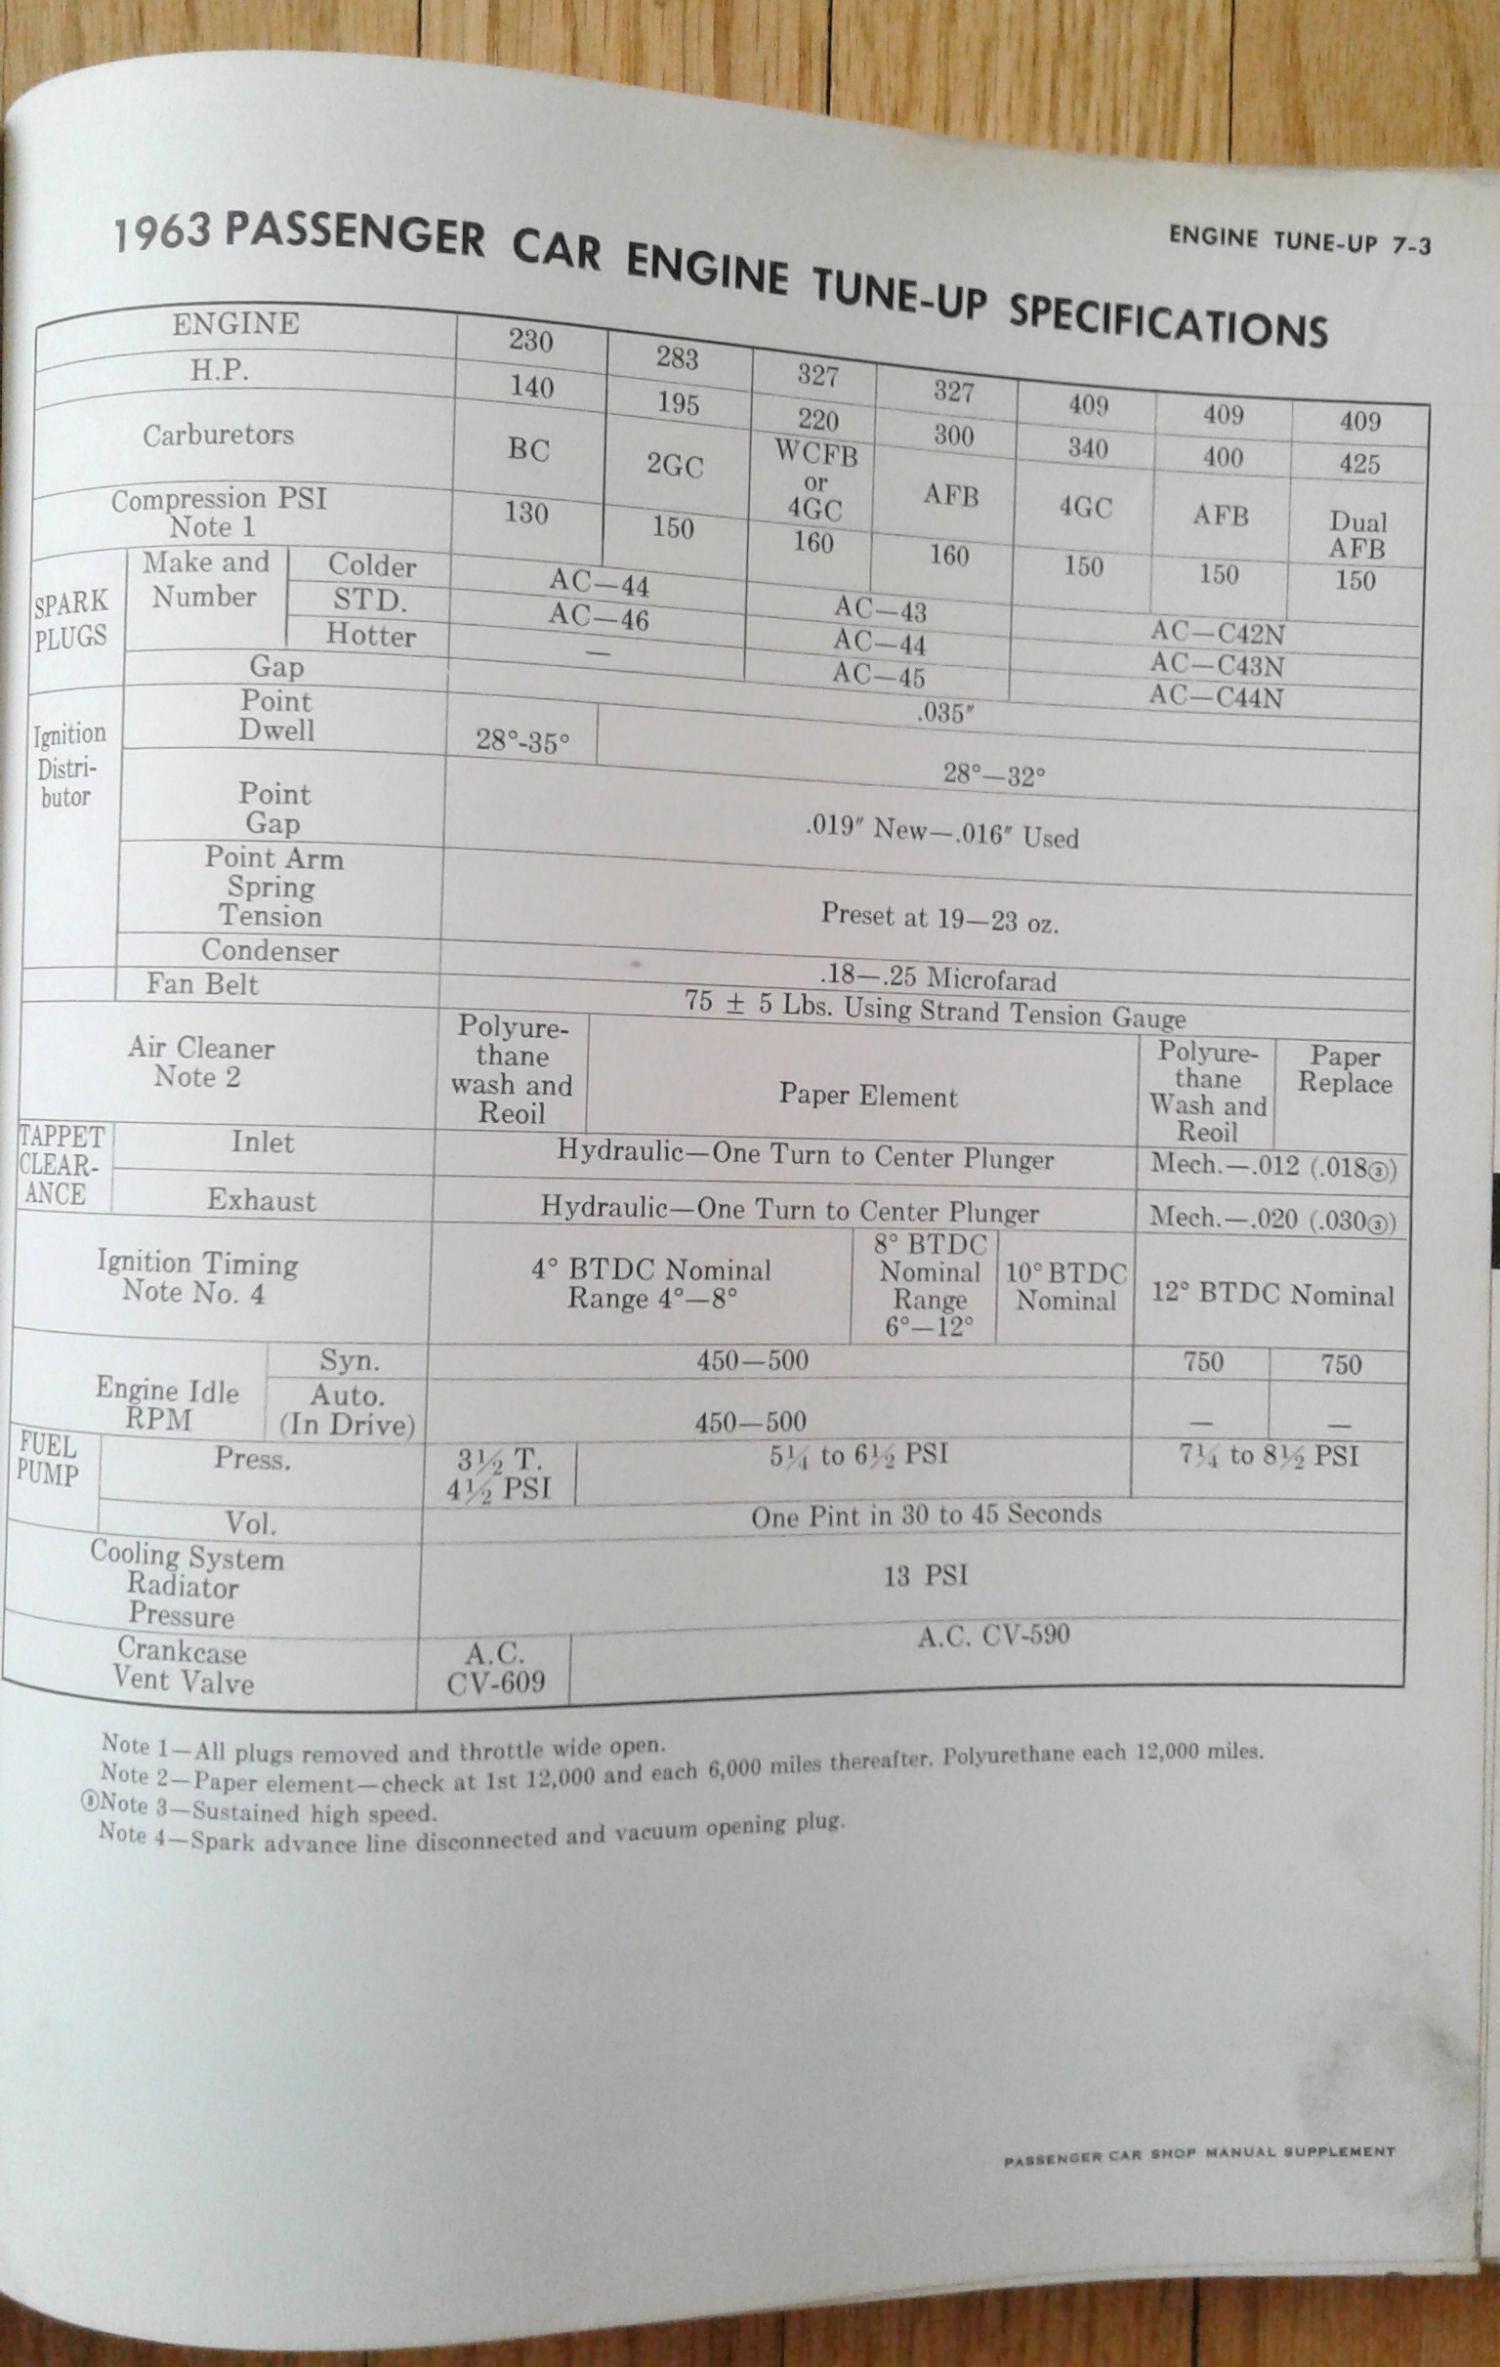 ENGINE TUNE-UP 7-3
1963 PASSENGER CAR ENGINE TUNE-UP SPECIFICATIONS
ENGINE 230 283 327 327 409 409 409
H.P. 140 195 220 300 340 400 425
Carburetors BC 2GC WCFB or 4GC AFB 4GC AFB Dual AFB
Compression PSI
Note 1 130 150 160 160 150 150 150
SPARK PLUGS
Make and Number
Colder AC—44 AC—43 AC—C42N
STD. AC—46 AC—44 AC—C43N
Hotter — AC—45 AC—C44N
Gap .035″
Ignition Distri-
butor
Point
Dwell 28°-35° 28°—32°
Point
Gap .019″ New—.016″ Used
Point Arm
Spring
Tension Preset at 19—23 oz.
Condenser .18—.25 Microfarad
Fan Belt 75 ± 5 Lbs. Using Strand Tension Gauge
Air Cleaner
Note 2
Polyure-
thane
wash and
Reoil
Paper Element
Polyure-
thane
Wash and
Reoil
Paper
Replace
TAPPET
CLEAR-
ANCE
Inlet Hydraulic—One Turn to Center Plunger Mech.—.012 (.018③)
Exhaust Hydraulic—One Turn to Center Plunger Mech.—.020 (.030③)
Ignition Timing
Note No. 4
4° BTDC Nominal
Range 4°—8°
8° BTDC
Nominal
Range
6°—12°
10° BTDC
Nominal
12° BTDC Nominal
Engine Idle
RPM
Syn. 450—500 750 750
Auto.
(In Drive) 450—500 — —
FUEL
PUMP
Press. 3½ T.
4½ PSI
5¼ to 6½ PSI 7¼ to 8½ PSI
Vol. One Pint in 30 to 45 Seconds
Cooling System
Radiator
Pressure 13 PSI
Crankcase
Vent Valve
A.C.
CV-609
A.C. CV-590
Note 1—All plugs removed and throttle wide open.
Note 2—Paper element—check at 1st 12,000 and each 6,000 miles thereafter. Polyurethane each 12,000 miles.
③Note 3—Sustained high speed.
Note 4—Spark advance line disconnected and vacuum opening plug.
PASSENGER CAR SHOP MANUAL SUPPLEMENT